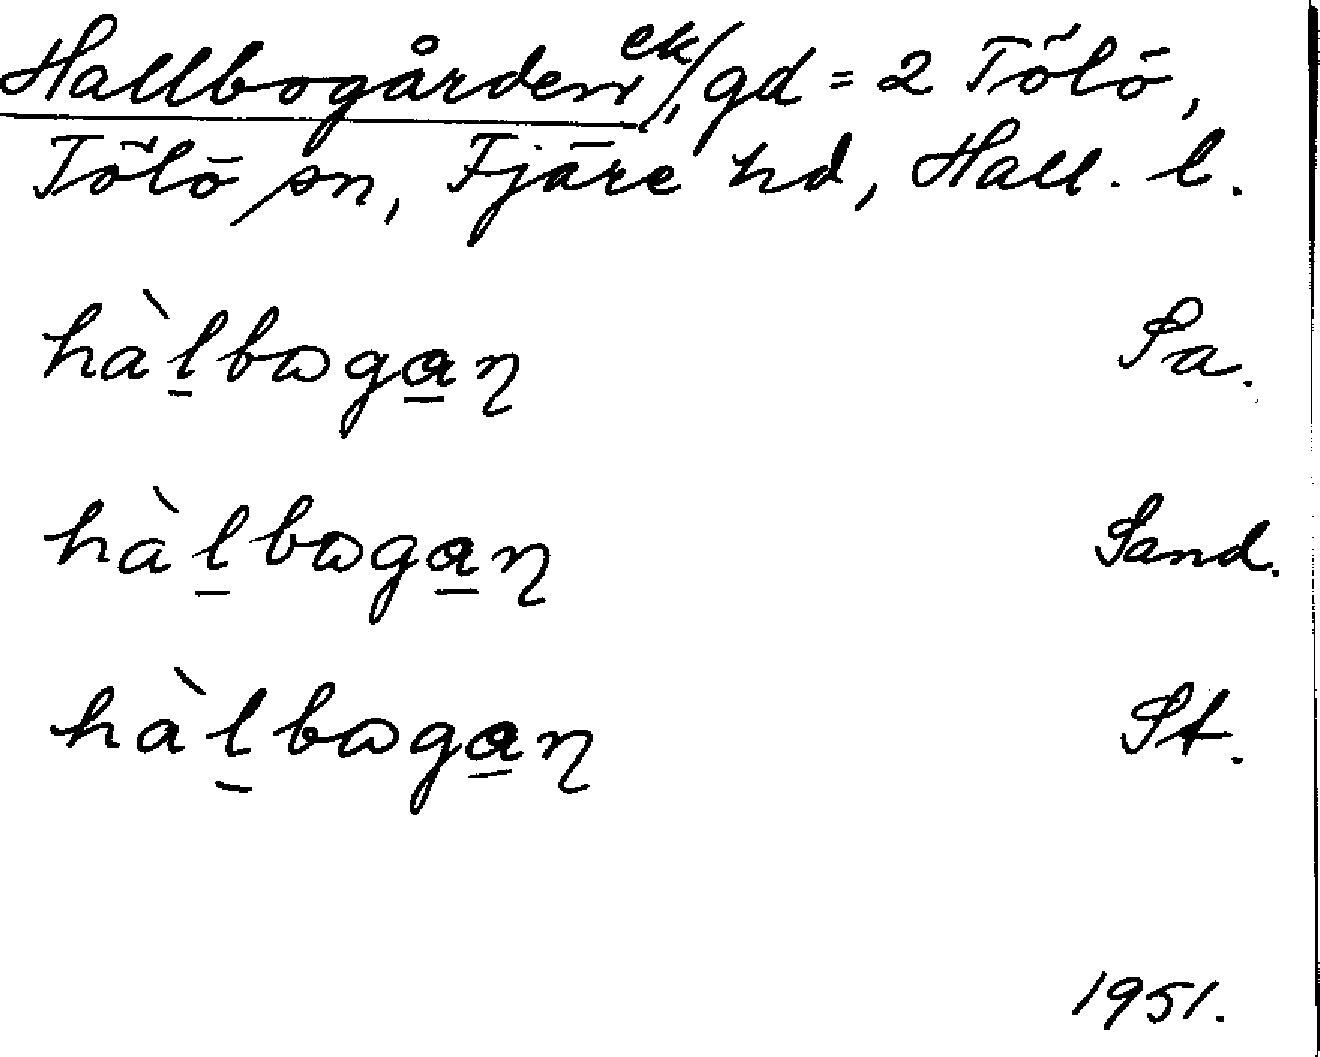 Hallbogården ek/, gd = 2 Tölö,
Tölö sn, Fjäre hd, Hall. l.
hàl̠bωga̠ɳ Sa.
hàl̠bωga̠ɳ Sand.
hàl̠bωga̠ɳ St.
1951.